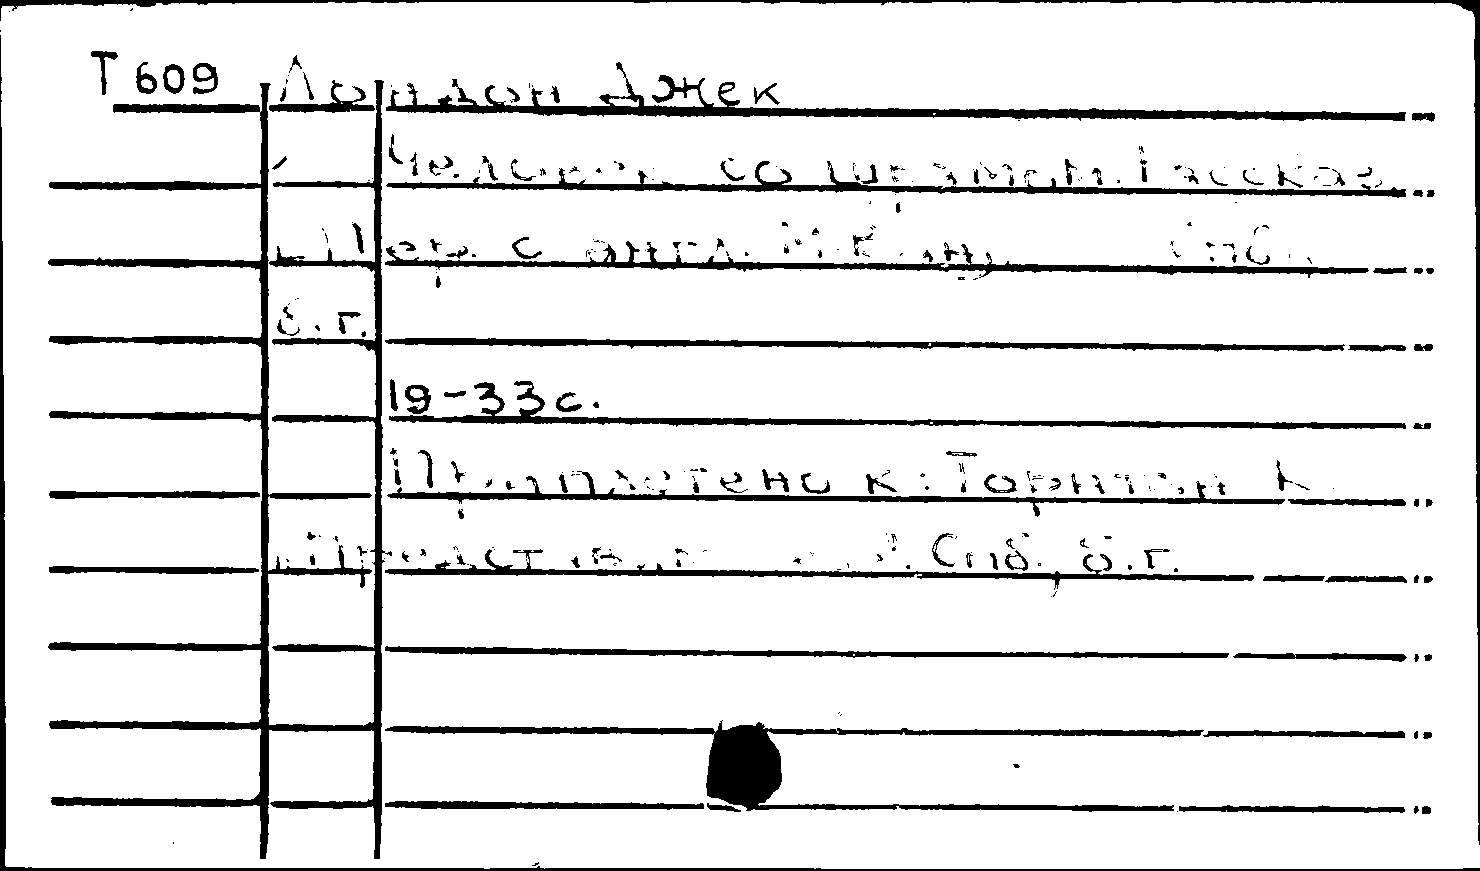 Т 609 Лондон Джек
Человек со шрамом. Рассказ.
Пер. с англ. Спб.,
б. г.
19-33 с.
Приплетено к: Торнтон
Спб., б. г.